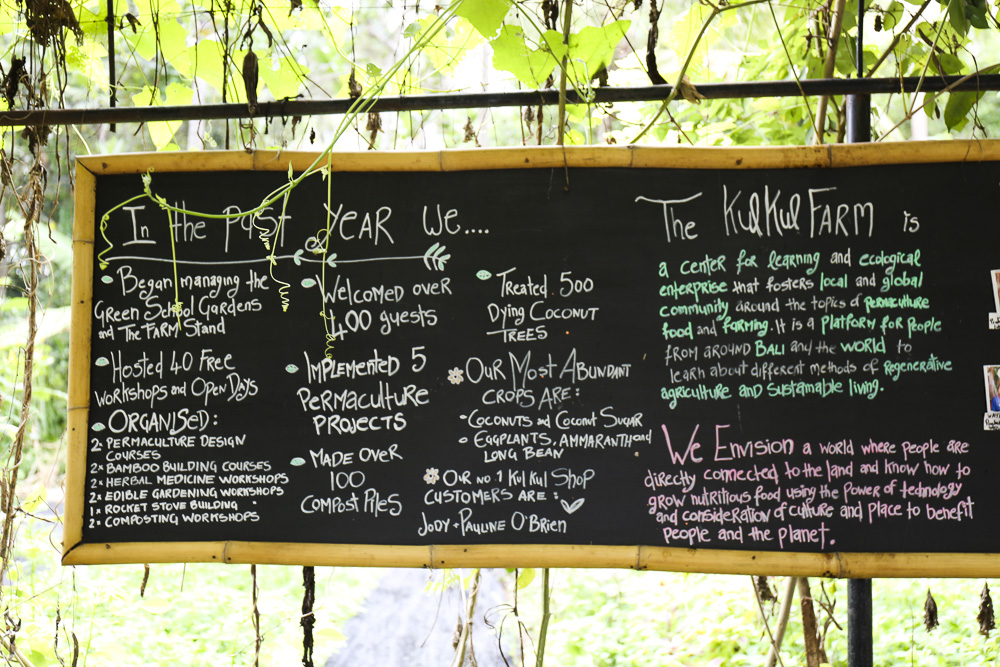 In the past YEAR We....
Began managing the
Green School Gardens
and The FARM Stand
Hosted 40 Free
Workshops and Open Days
ORGANISED:
2x PERMACULTURE DESIGN
COURSES
2x BAMBOO BUILDING COURSES
2x HERBAL MEDICINE WORKSHOPS
2x EDIBLE GARDENING WORKSHOPS
1x ROCKET STOVE BUILDING
2x COMPOSTING WORMSHOPS
Welcomed over
400 guests
Implemented 5
PERMACULTURE
PROJECTS
Made Over
100
Compost Piles
Treated 500
Dying Coconut
TREES
Our Most Abundant
CROPS ARE:
- Coconuts and Coconut Sugar
- Eggplants, Ammaranth and
Long Bean
Our no 1 Kul Kul Shop
Customers are:
Jody + Pauline O'Brien
The KulKul FARM is
a center for learning and ecological
enterprise that fosters local and global
community around the topics of permaculture
food and farming. It is a platform for people
from around BALI and the world to
learn about different methods of regenerative
agriculture and sustainable living.
We Envision a world where people are
directly connected to the land and know how to
grow nutritious food using the Power of technology
and consideration of culture and place to benefit
people and the planet.